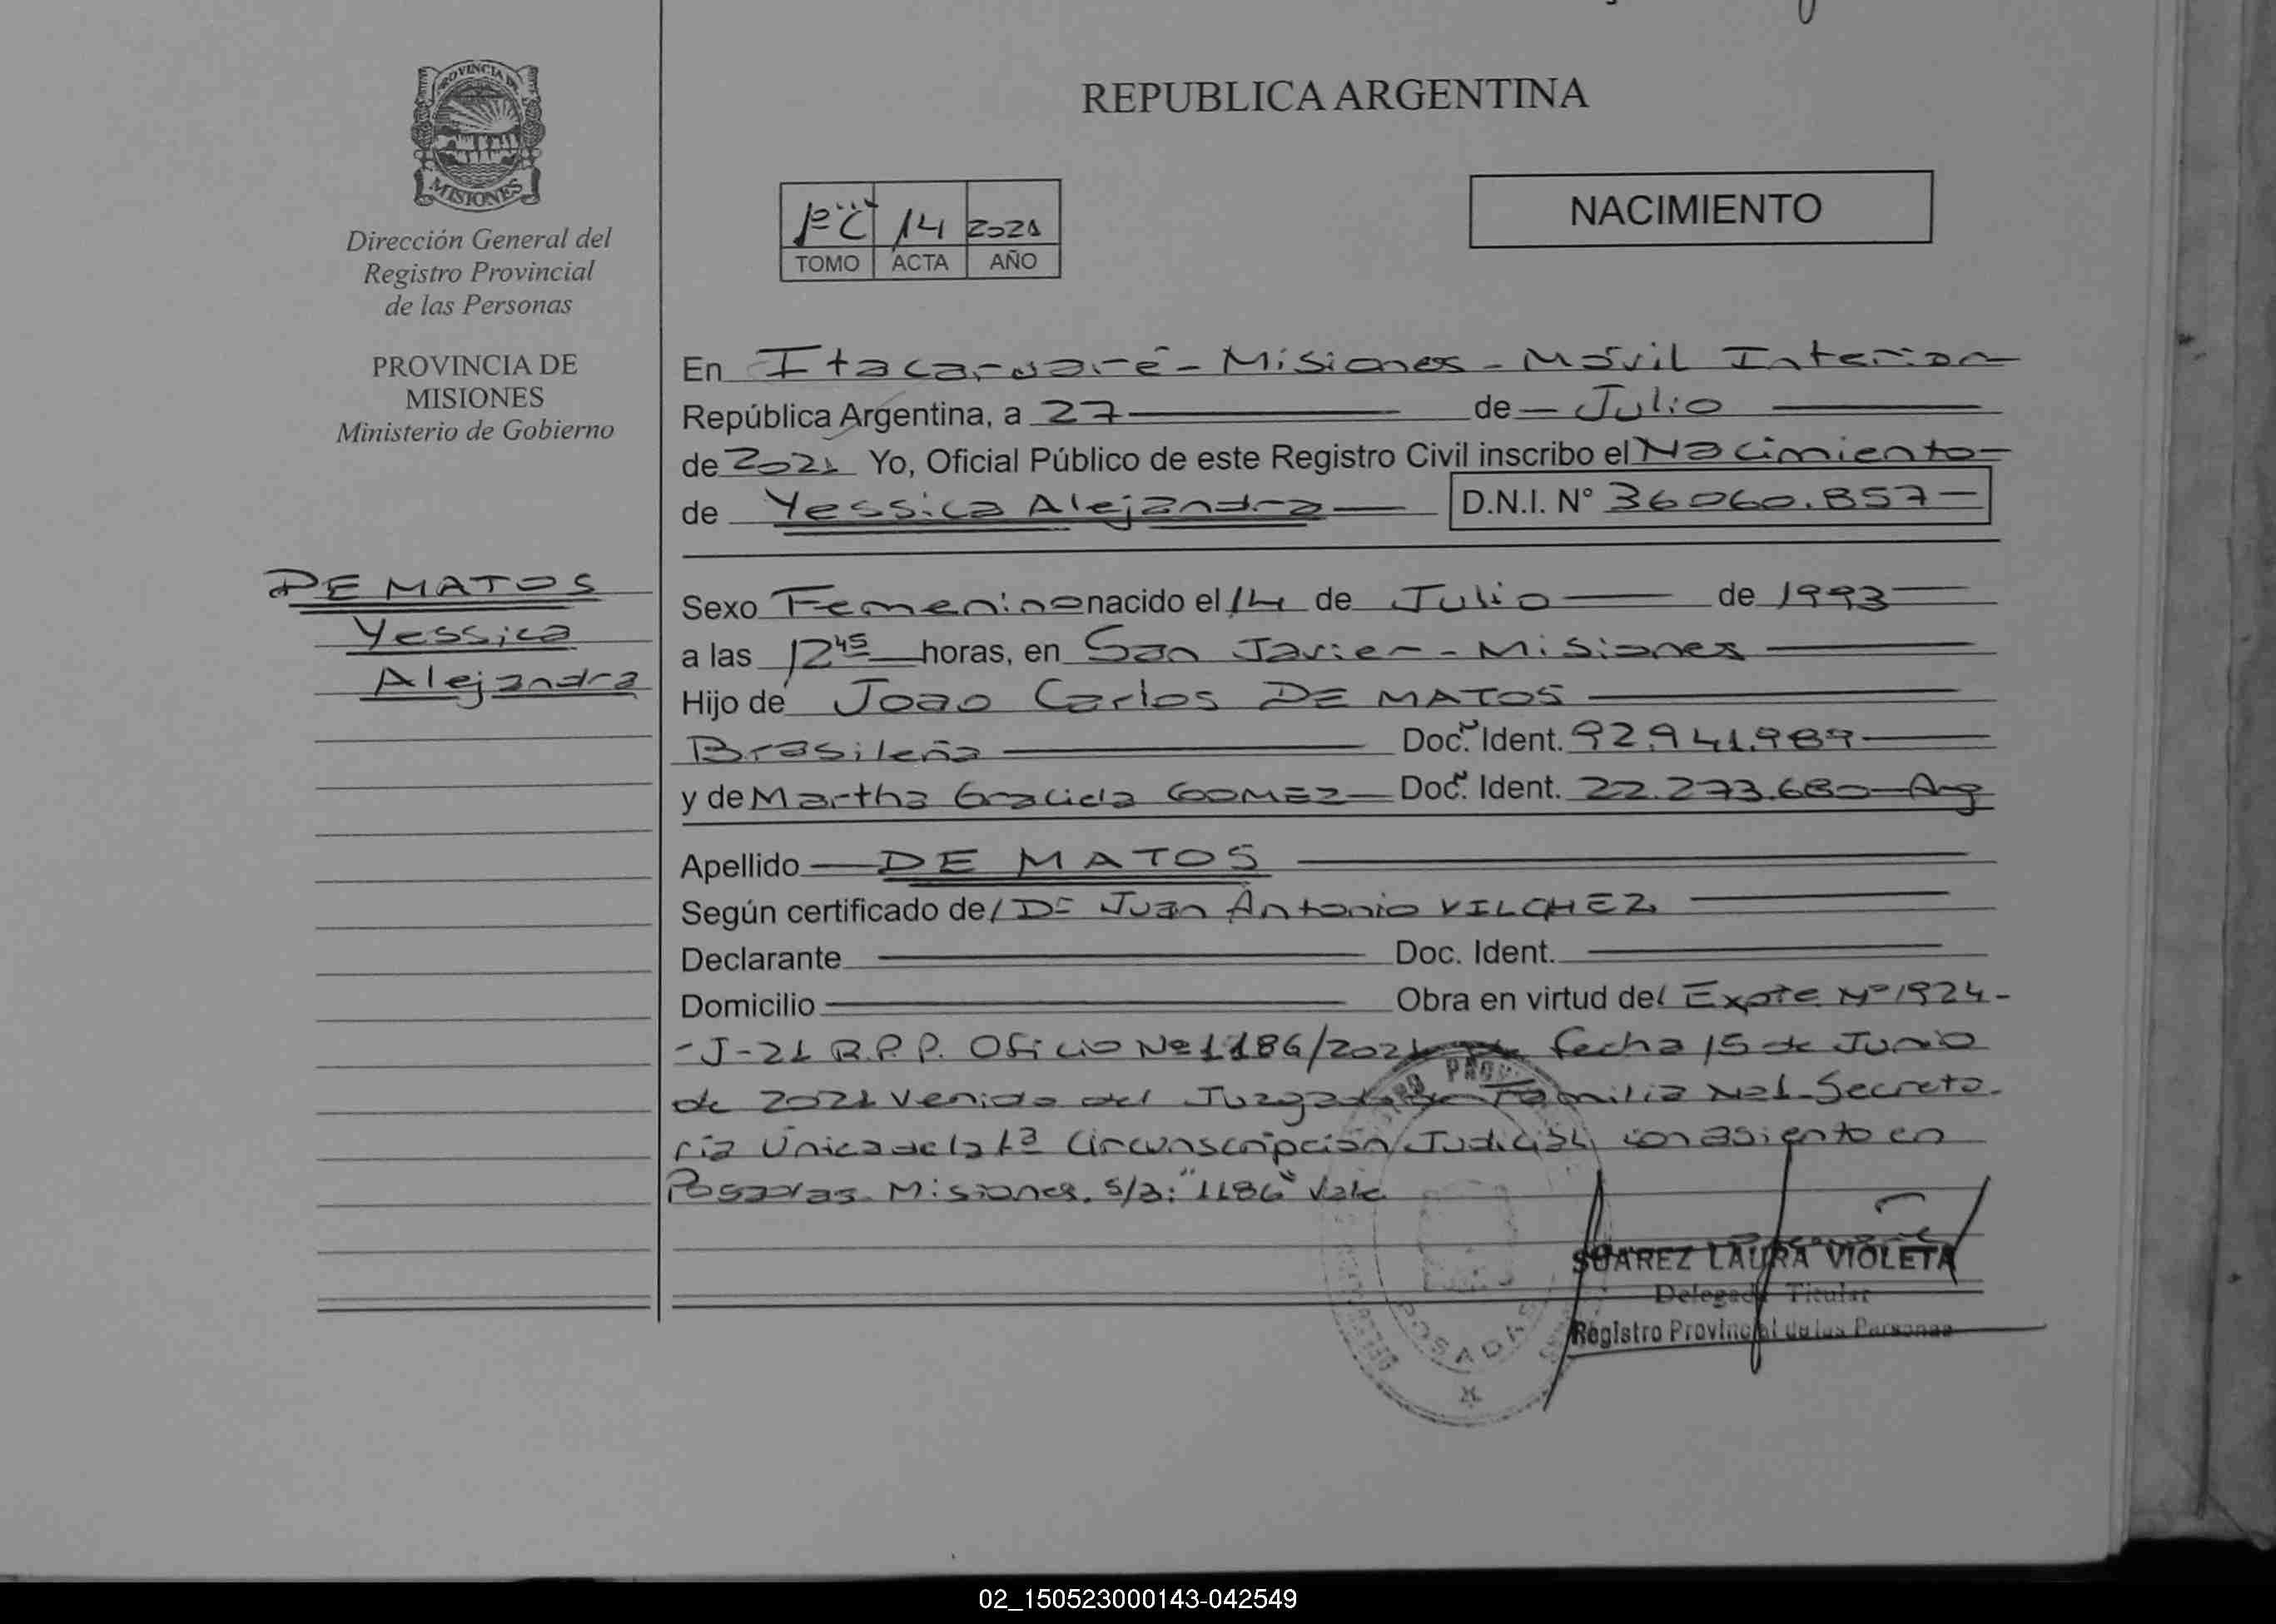 PROVINCIA DE
MISIONES
Dirección General del
Registro Provincial
de las Personas
PROVINCIA DE
MISIONES
Ministerio de Gobierno
DE MATOS
Yessica
Alejandra
REPUBLICA ARGENTINA
14 2021
TOMO ACTA AÑO
NACIMIENTO
En Itacaruaré - Misiones - Móvil Interior
República Argentina, a 27 de Julio
de 2021 Yo, Oficial Público de este Registro Civil inscribo el Nacimiento
de Yessica Alejandra D.N.I. N° 36060.857
Sexo Femenino nacido el 14 de Julio de 1993
a las 12 45 horas, en San Javier - Misiones
Hijo de Joao Carlos DE MATOS
Brasileña Doc. Ident. 92.941.989
y de Martha Graciela GOMEZ Doc. Ident. 22.273.680 Arg
Apellido DE MATOS
Según certificado de/ Dr Juan Antonio VILCHEZ
Declarante Doc. Ident.
Domicilio Obra en virtud del Expte Nº 1924-
-J-21 R.P.P. Oficio Nº 1186/2021 de fecha 15 de Junio
de 2021 venido del Juzgado de Familia Nº1 Secreta-
ría Única de la 1ª Circunscripción Judicial, con asiento en
Posadas - Misiones. S/a: "1186" Vale
SUAREZ LAURA VIOLETA
Delegada Titular
Registro Provincial de las Personas
POSADAS
02_150523000143-042549